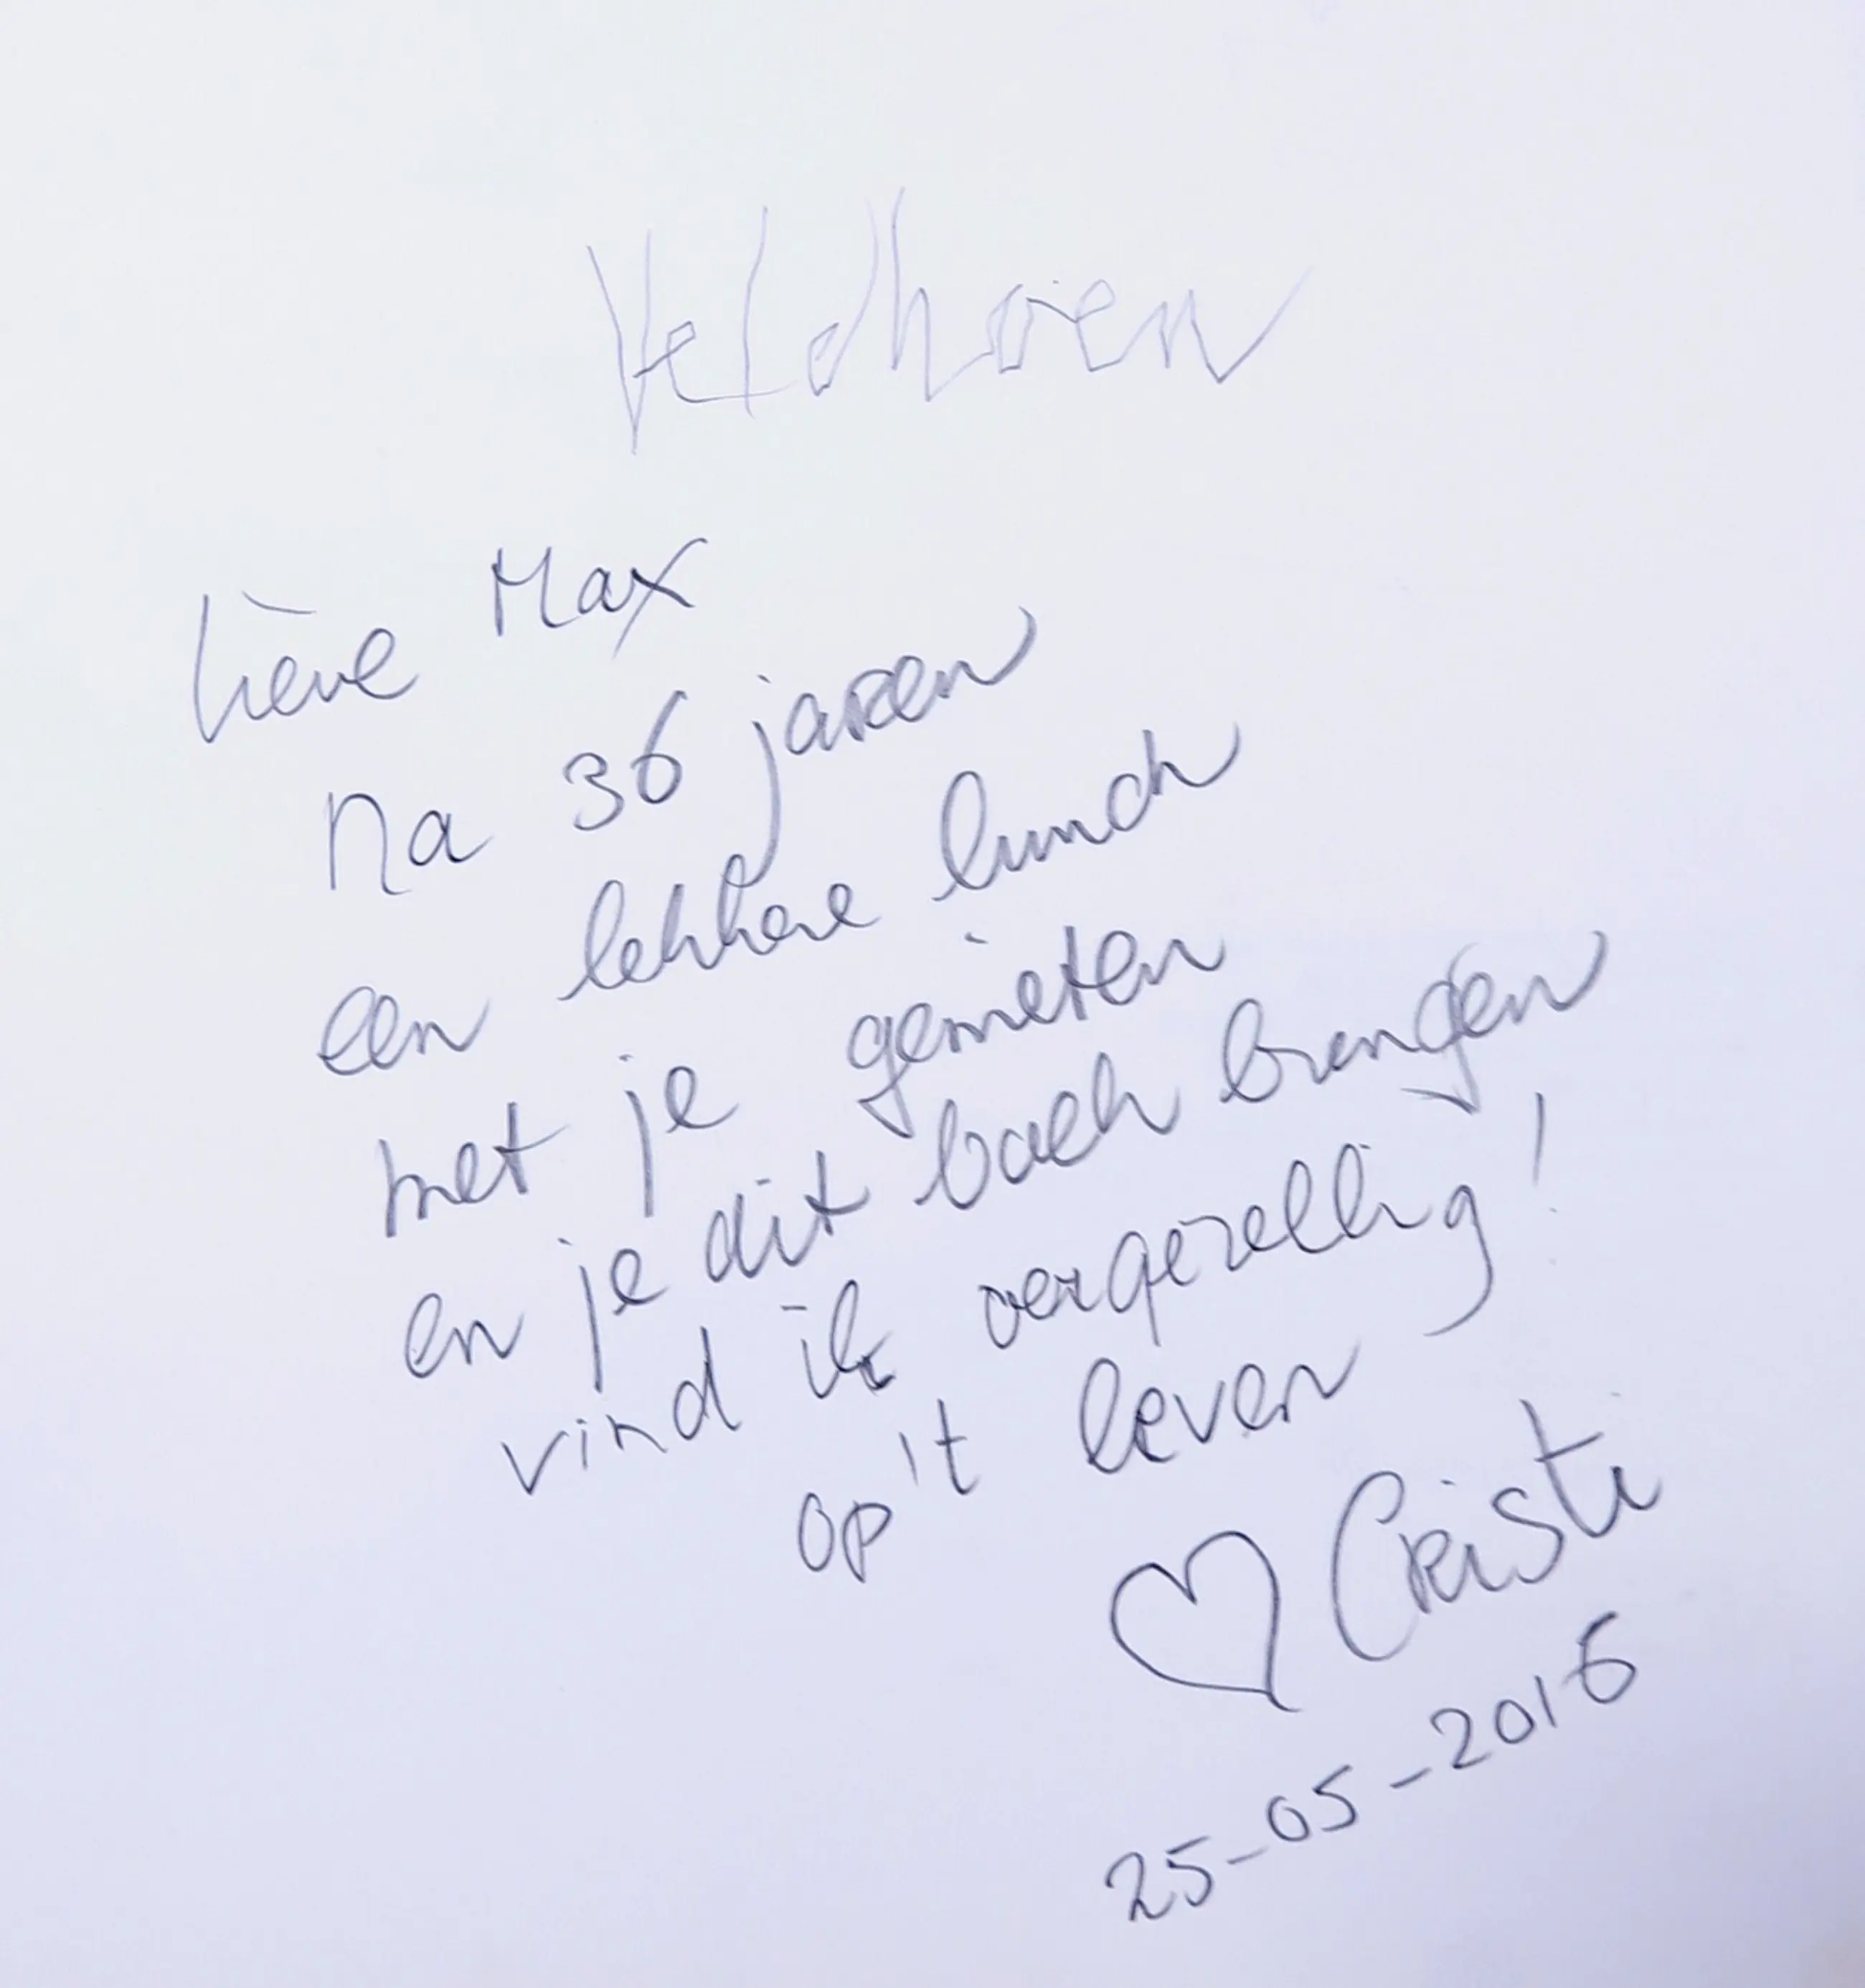 Veldhoen
Lieve Max
Na 36 jaren
een lekkere lunch
met je genieten
en je dit boek brengen
vind ik oergezellig!
op 't leven
♡ Cristi
25-05-2016